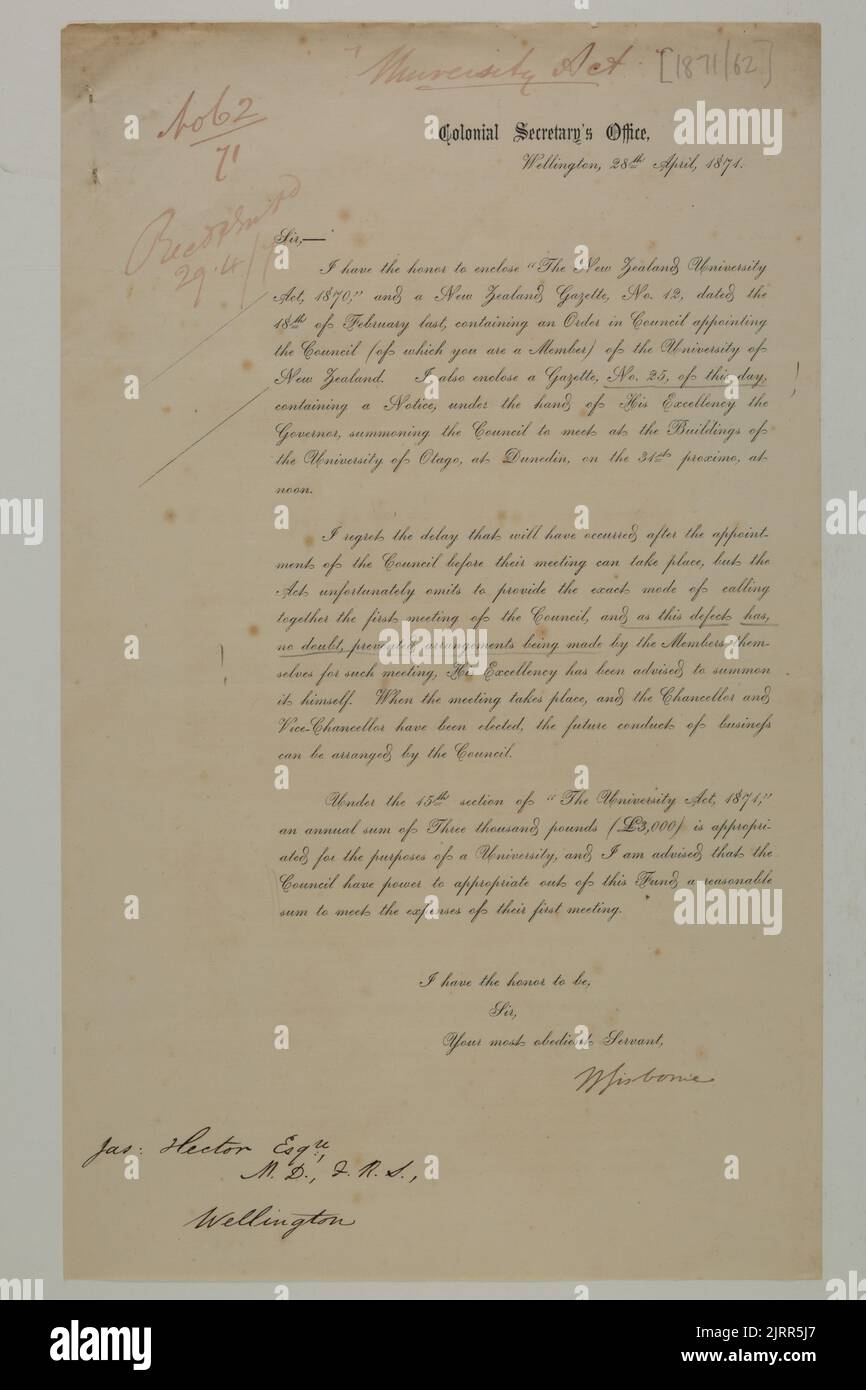 "University Act"
[1871/62]
No 62
71
Colonial Secretary's Office,
Wellington, 28th April, 1871.
29.4/7
Sir,—
I have the honor to enclose "The New Zealand University
Act, 1870," and a New Zealand Gazette, No. 12, dated the
18th of February last, containing an Order in Council appointing
the Council (of which you are a Member) of the University of
New Zealand. I also enclose a Gazette, No. 25, of this day,
containing a Notice, under the hand of His Excellency the
Governor, summoning the Council to meet at the Buildings of
the University of Otago, at Dunedin, on the 31st proximo, at
noon.
I regret the delay that will have occurred after the appoint-
ment of the Council before their meeting can take place, but the
Act unfortunately omits to provide the exact mode of calling
together the first meeting of the Council, and as this defect has,
no doubt, prevented arrangements being made by the Members them-
selves for such meeting, His Excellency has been advised to summon
it himself. When the meeting takes place, and the Chancellor and
Vice-Chancellor have been elected, the future conduct of business
can be arranged by the Council.
Under the 15th section of "The University Act, 1871,"
an annual sum of Three thousand pounds (£3,000) is appropri-
ated for the purposes of a University, and I am advised that the
Council have power to appropriate out of this Fund a reasonable
sum to meet the expenses of their first meeting.
I have the honor to be,
Sir,
Your most obedient Servant,
W Gisborne
Jas: Hector Esqre,
M.D., F.R.S.,
Wellington
alamy
Image ID: 2JRR5J7
www.alamy.com